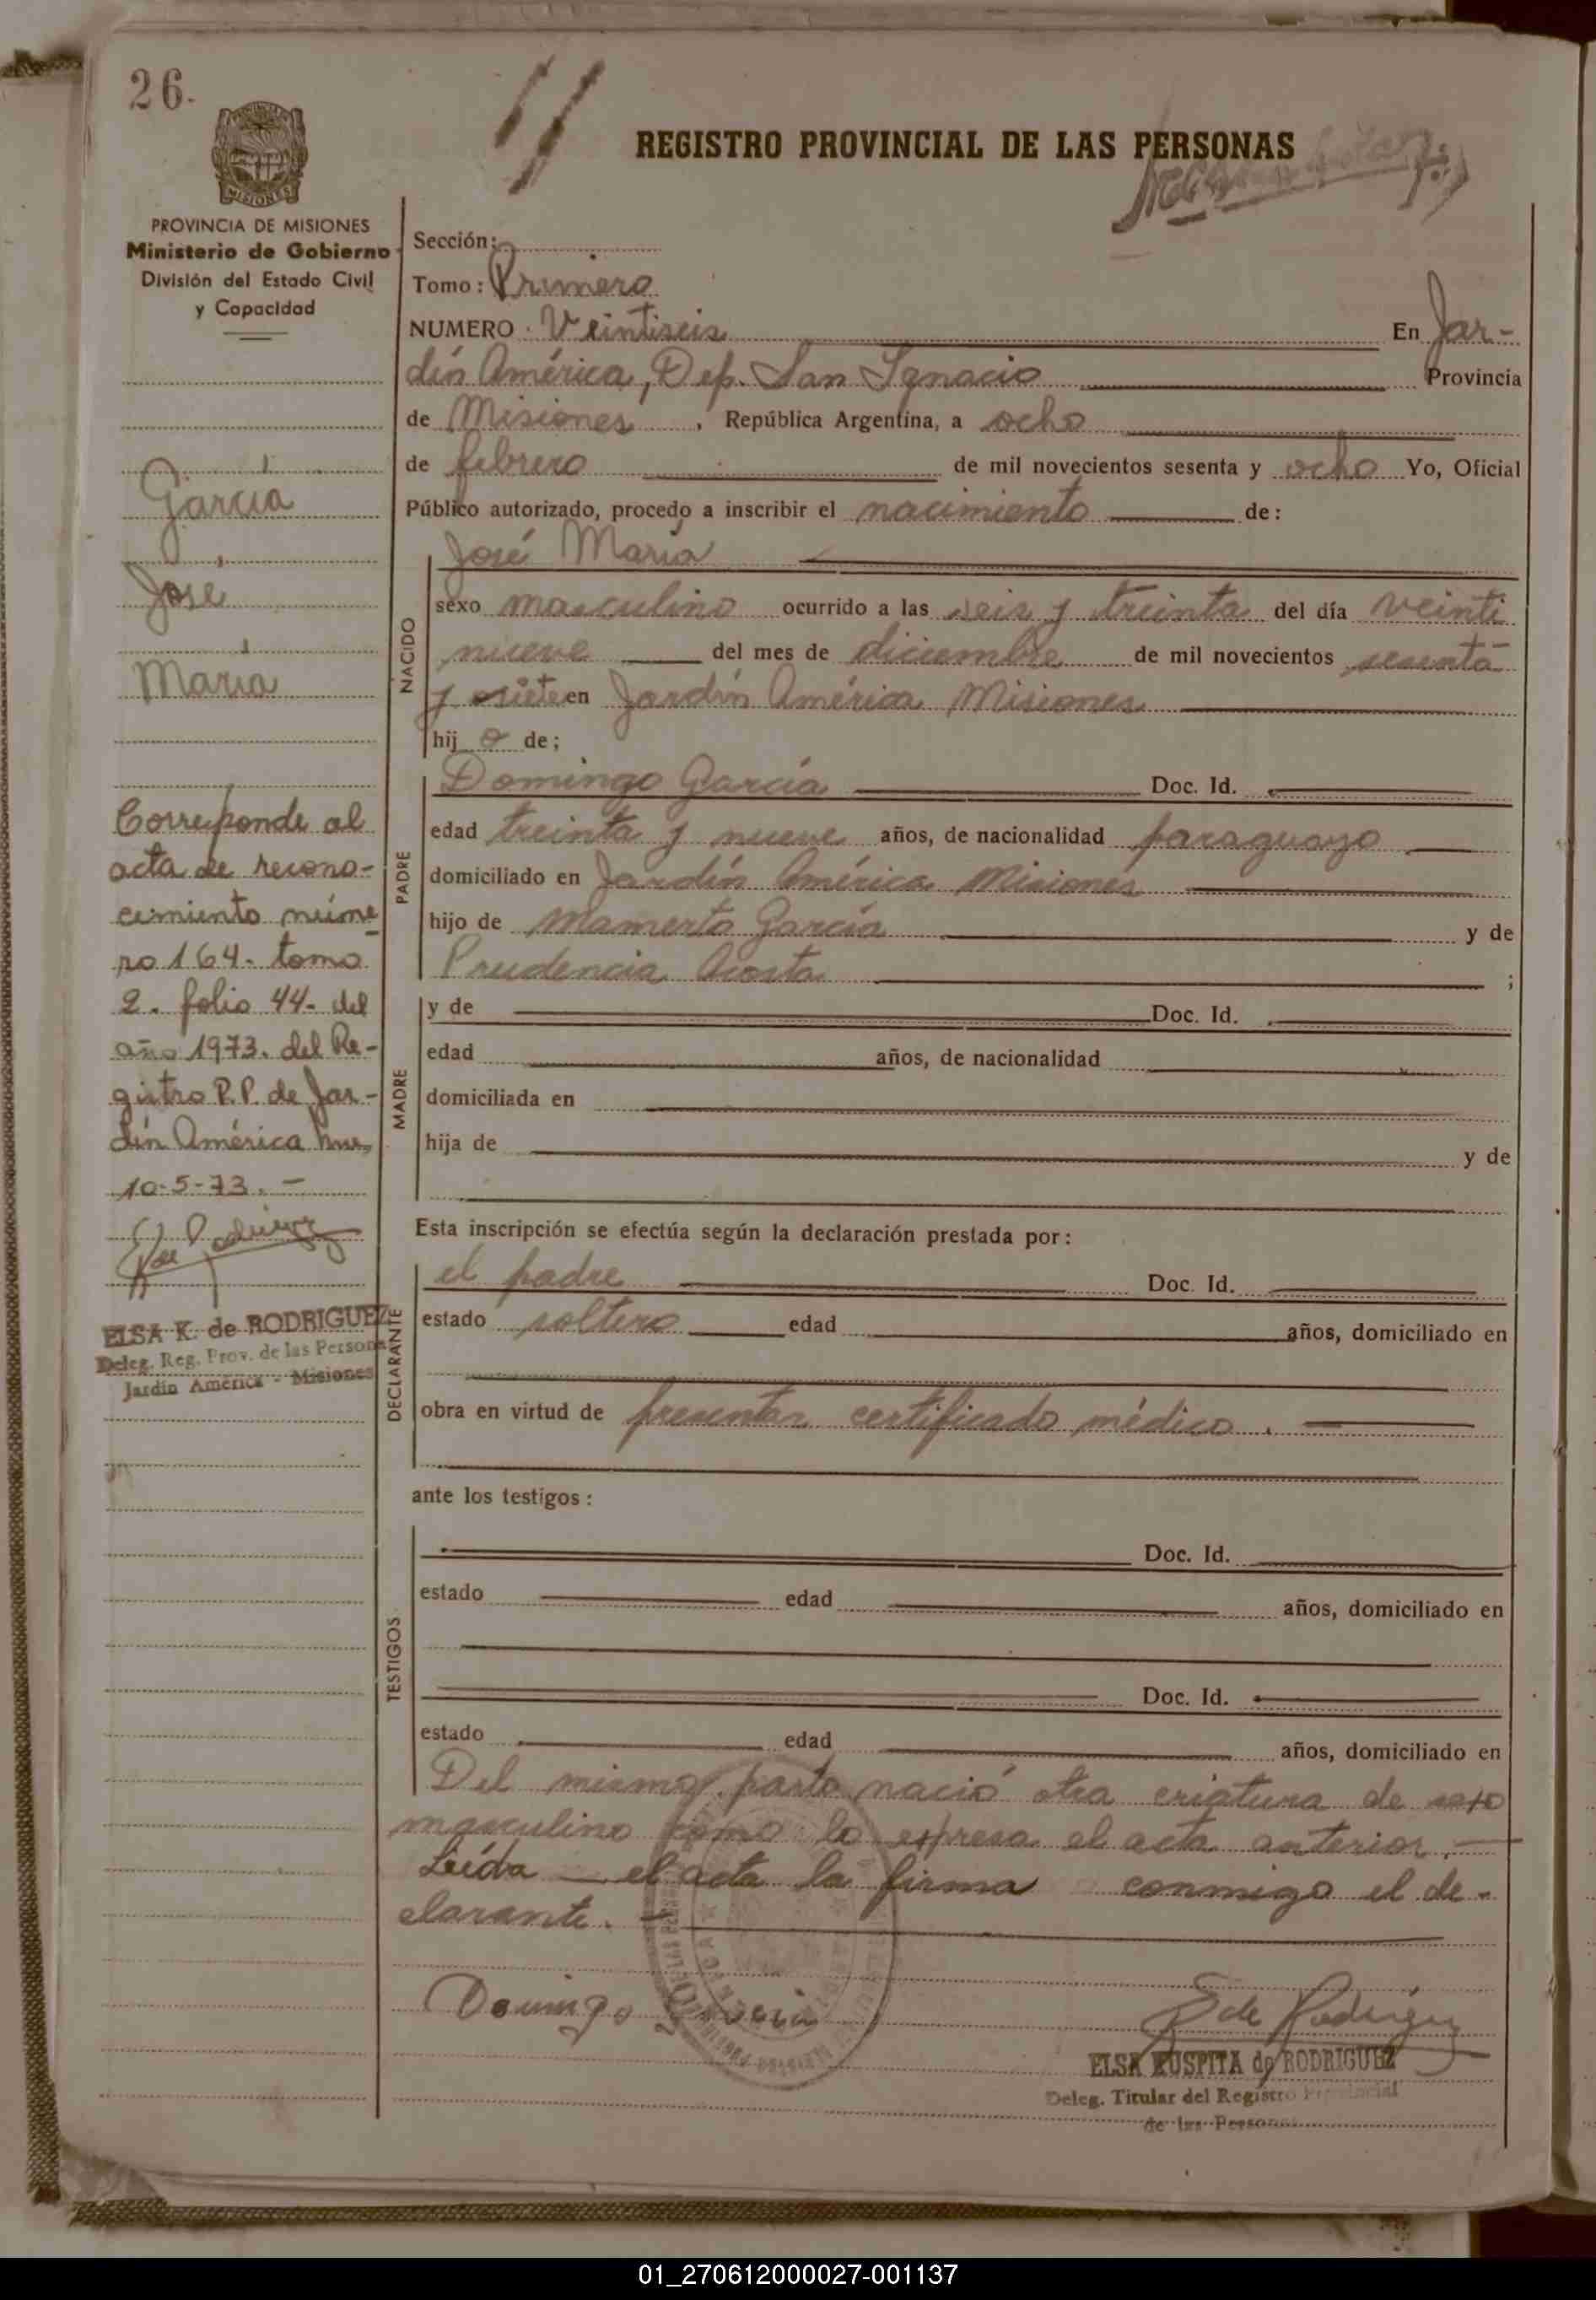 26.
REGISTRO PROVINCIAL DE LAS PERSONAS
PROVINCIA DE MISIONES
Ministerio de Gobierno
División del Estado Civil
y Capacidad
García
José
María
Correponde al
acta de recono-
cimiento núme
ro 164. tomo
2. folio 44- del
año 1973. del Re-
gistro P.P. de Jar-
dín América
10-5-73. -
ELSA K. de RODRIGUEZ
Deleg. Reg. Prov. de las Persona
Jardín América - Misiones
Sección:
Tomo: Primero
NUMERO Veintiseis En Jar-
dín América, Dep. San Ignacio Provincia
de Misiones, República Argentina, a ocho
de febrero de mil novecientos sesenta y ocho Yo, Oficial
Público autorizado, procedo a inscribir el nacimiento de:
José María
NACIDO
sexo masculino ocurrido a las seis y treinta del día veinti
nueve del mes de diciembre de mil novecientos sesenta
y siete en Jardín América Misiones
hijo de;
PADRE
Domingo García Doc. Id.
edad treinta y nueve años, de nacionalidad paraguayo
domiciliado en Jardín América Misiones
hijo de Mamerto García y de
Prudencia Acosta ;
MADRE
y de Doc. Id.
edad años, de nacionalidad
domiciliada en
hija de y de
Esta inscripción se efectúa según la declaración prestada por:
DECLARANTE
el padre Doc. Id.
estado soltero edad años, domiciliado en
obra en virtud de presentar certificado médico.
ante los testigos:
TESTIGOS
Doc. Id.
estado edad años, domiciliado en
Doc. Id.
estado edad años, domiciliado en
Del mismo parto nació otra criatura de sexo
masculino como lo expresa el acta anterior.-
Leída el acta la firma conmigo el de-
clarante. -
Domingo García
E de Rodríguez
ELSA KUSPITA de RODRIGUEZ
Deleg. Titular del Registro Provincial
de las Personas
01_270612000027-001137